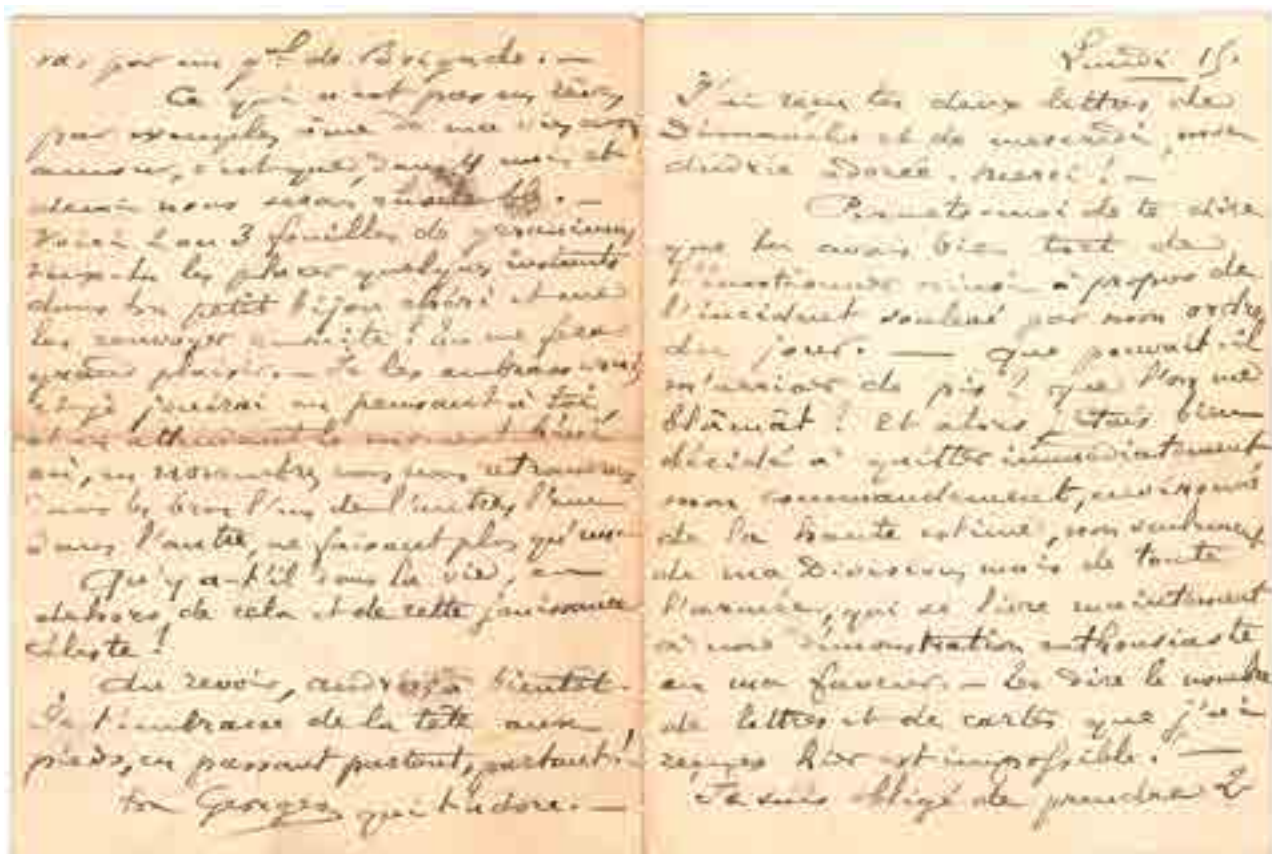 ra, par un g^al de Brigade. —
Ce qui n'est pas un rêve,
par exemple, âme de ma vie,
amour, c'est que, dans mois et
demi nous serons —
Voici 2 ou 3 feuilles de geranium,
veux-tu les placer quelques instants
dans ton petit bijou chéri et me
les renvoyer ensuite! tu me feras
grand plaisir. — Je les embrasserai,
et je jouirai en pensant à toi,
et en attendant le moment béni
où, en novembre, nous nous retrouverons
dans les bras l'un de l'autre, l'un
dans l'autre, ne faisant plus qu'un —
Qu'y a-t'il dans la vie, en
dehors de cela et de cette jouissance
céleste!
Au revoir, à bientôt.
Je t'embrasse de la tête aux
pieds, en passant partout, partout!
ton Georges qui t'adore. —
Lundi 15.
J'ai reçu tes deux lettres de
Dimanche et de mercredi, mon
adorée. Merci! —
Permets-moi de te dire
que tu avais bien tort de
t'émotionner ainsi à propos de
l'incident soulevé par mon ordre
du jour. — Que pouvait-il
m'arriver de pis! que l'on me
blâmât! Et alors j'étais bien
décidé à quitter immédiatement
mon commandement, environné
de la haute estime, non seulement
de ma Division, mais de toute
l'armée, qui se livre maintenant
à une démonstration enthousiaste
en ma faveur. — Te dire le nombre
de lettres et de cartes que j'ai
reçues hier est impossible. —
Je suis obligé de prendre 2